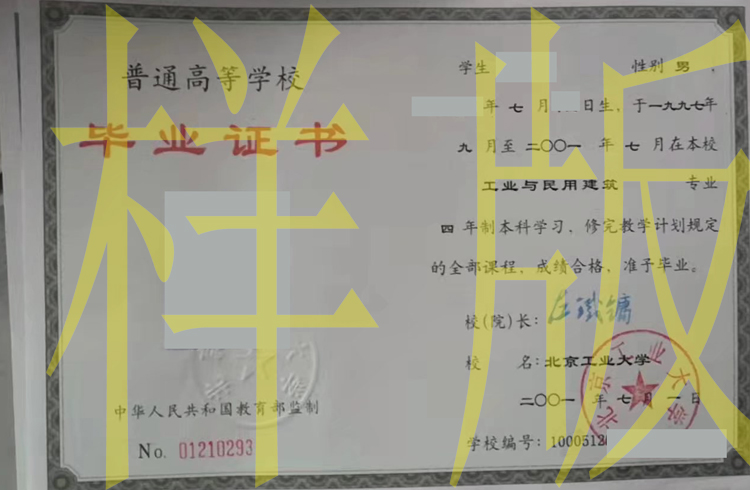 普通高等学校
毕业证书
中华人民共和国教育部监制
No. 01210293
学生 性别 男 ,
年 七 月 日生, 于一九九七年
九 月至 二〇〇一 年 七 月在本校
工业与民用建筑 专业
四 年制本科学习, 修完教学计划规定
的全部课程, 成绩合格, 准予毕业。
校(院)长:
校 名: 北京工业大学
二〇〇一 年 七 月 一 日
学校编号: 1000512
北京工业大学
样版